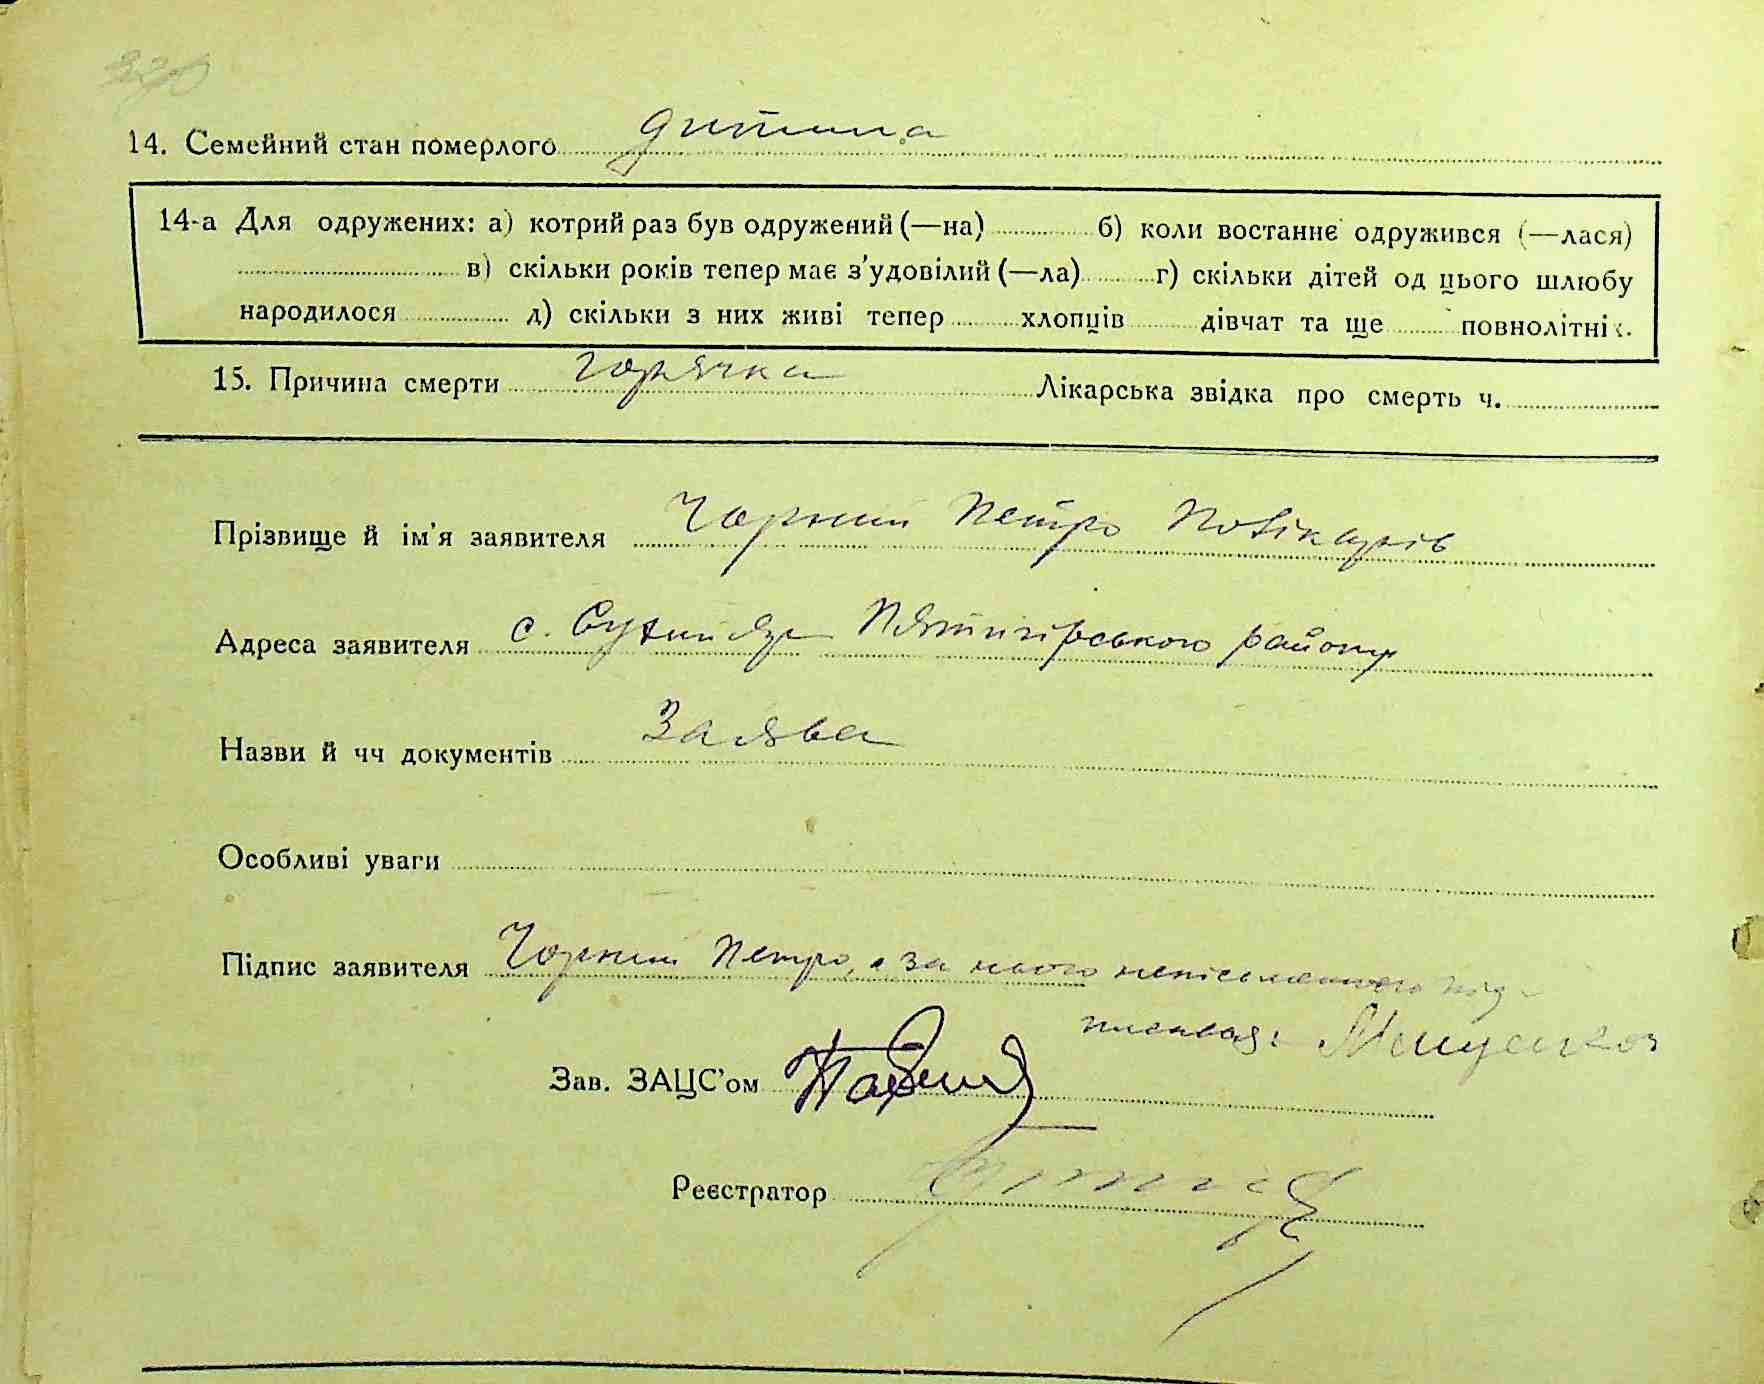 14. Семейний стан померлого дитина
14-а Для одружених: а) котрий раз був одружений (—на) б) коли востаннє одружився (—лася)
в) скільки років тепер має з'удовілий (—ла) г) скільки дітей од цього шлюбу
народилося д) скільки з них живі тепер хлопців дівчат та ще повнолітніх.
15. Причина смерти горячка Лікарська звідка про смерть ч.
Прізвище й ім'я заявителя Чорний Петро
Адреса заявителя с. Пятигірського району
Назви й чч документів Заява
Особливі уваги
Підпис заявителя Чорний Петро, а за нього неписьменного під-
писався:
Зав. ЗАЦС'ом
Реєстратор